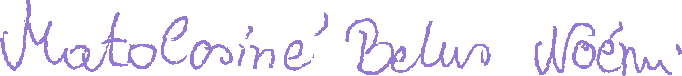 Matolcsiné Belus Noémi